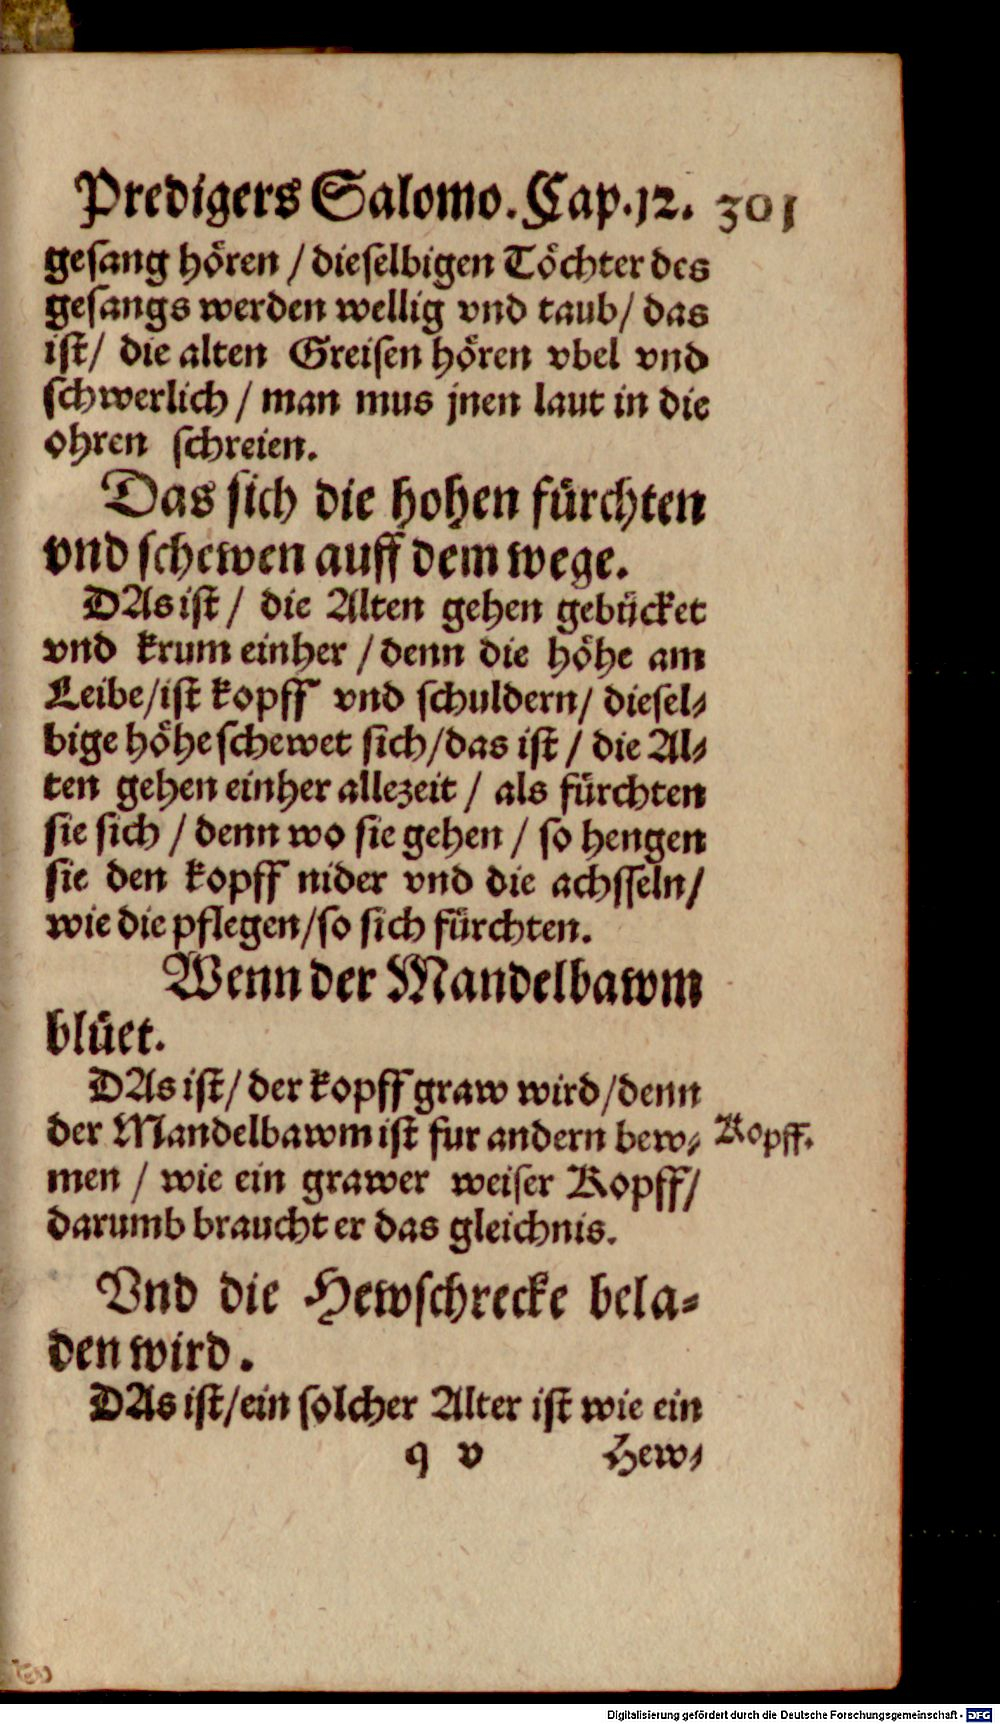 Predigers Salomo. Cap. 12. 301
gesang hören / dieselbigen Töchter des
gesangs werden wellig vnd taub / das
ist / die alten Greisen hören vbel vnd
schwerlich / man mus jnen laut in die
ohren schreien.
Das sich die hohen fürchten
vnd schewen auff dem wege.
DAs ist / die Alten gehen gebücket
vnd krum einher / denn die höhe am
Leibe / ist kopff vnd schuldern / diesel-
bige höhe schewet sich / das ist / die Al-
ten gehen einher allezeit / als fürchten
sie sich / denn wo sie gehen / so hengen
sie den kopff nider vnd die achsseln /
wie die pflegen / so sich fürchten.
Wenn der Mandelbawm
blüet.
DAs ist / der kopff graw wird / denn
der Mandelbawm ist fur andern bew- Kopff.
men / wie ein grawer weiser Kopff /
darumb braucht er das gleichnis.
Vnd die Hewschrecke bela-
den wird.
DAs ist / ein solcher Alter ist wie ein
q v Hew-
Digitalisierung gefördert durch die Deutsche Forschungsgemeinschaft - DFG